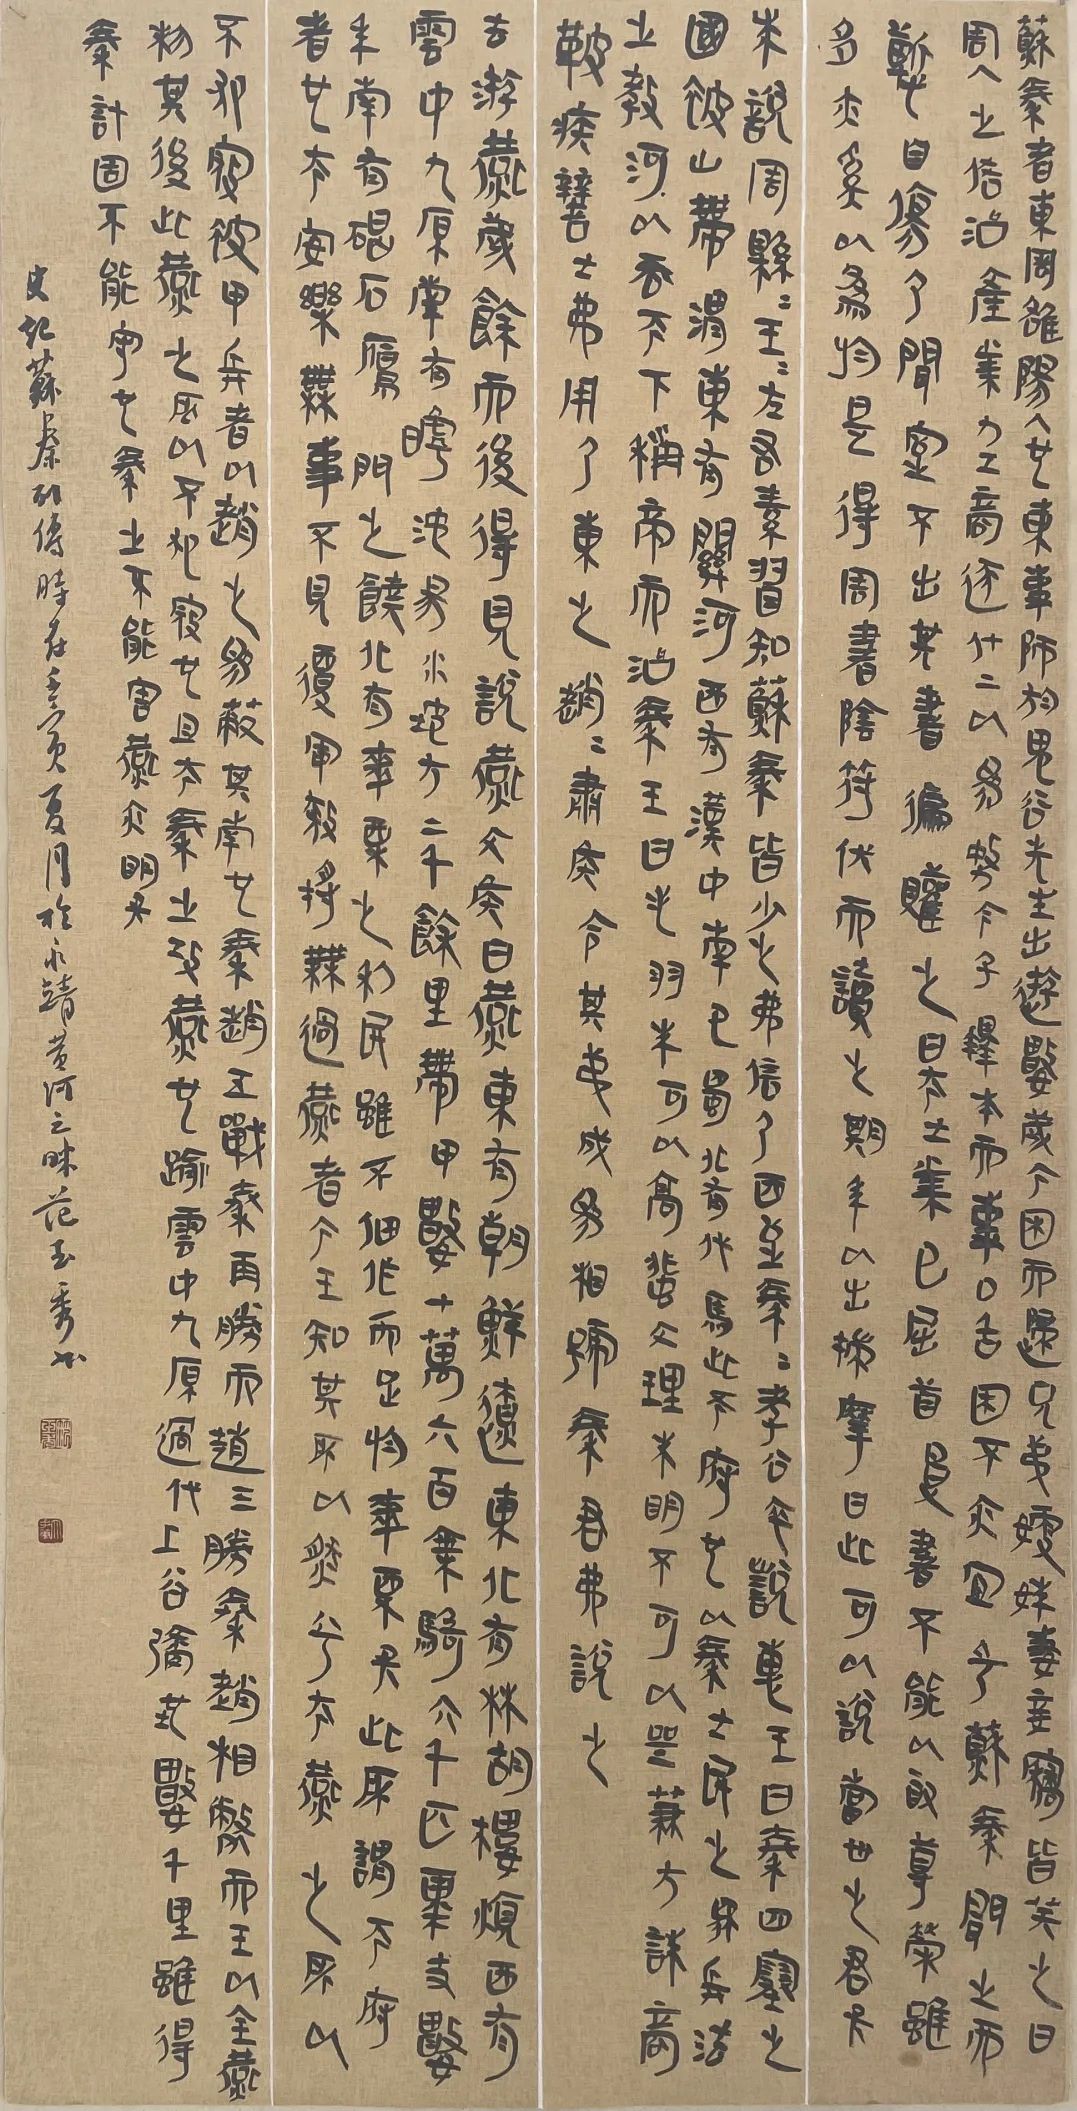 蘇秦者東周雒陽人也東事師於鬼谷先生出遊數歲大困而歸兄弟嫂妹妻妾竊皆笑之曰
周人之俗治產業力工商逐什二以為務今子釋本而事口舌困不亦宜乎蘇秦聞之而
慙自傷乃閉室不出其書徧觀之曰夫士業已屈首受書不能以取尊榮雖
多亦奚以為於是得周書陰符伏而讀之期年以出揣摩曰此可以說當世之君矣
求說周顯〻王〻左右素習知蘇秦皆少之弗信乃西至秦〻孝公卒說惠王曰秦四塞之
國被山帶渭東有關河西有漢中南巴蜀北有代馬此天府也以秦士民之眾兵法
之教可以吞天下稱帝而治秦王曰毛羽未可以高蜚文理未明不可以并兼方誅商
鞅疾辯士弗用乃東之趙〻肅侯令其弟成為相號奉君弗說之
去游燕歲餘而後得見說燕文侯曰燕東有朝鮮遼東北有林胡樓煩西有
雲中九原南有嘑沱易水地方二千餘里帶甲數十萬六百乘騎六千匹粟支數
年南有碣石鴈門之饒北有棗栗之利民雖不佃作而足於棗栗矣此所謂天府
者也夫安樂無事不見覆軍殺將無過燕者大王知其所以然乎夫燕之所以
不犯寇被甲兵者以趙之為蔽其南也秦趙五戰秦再勝而趙三勝秦趙相斃而王以全燕
制其後此燕之所以不犯寇也且夫秦之攻燕也踰雲中九原過代上谷彌地數千里雖得
秦計固不能守也秦之不能害燕亦明矣
史記蘇秦列傳時在壬寅夏月於永靖黃河之畔范玉秀书